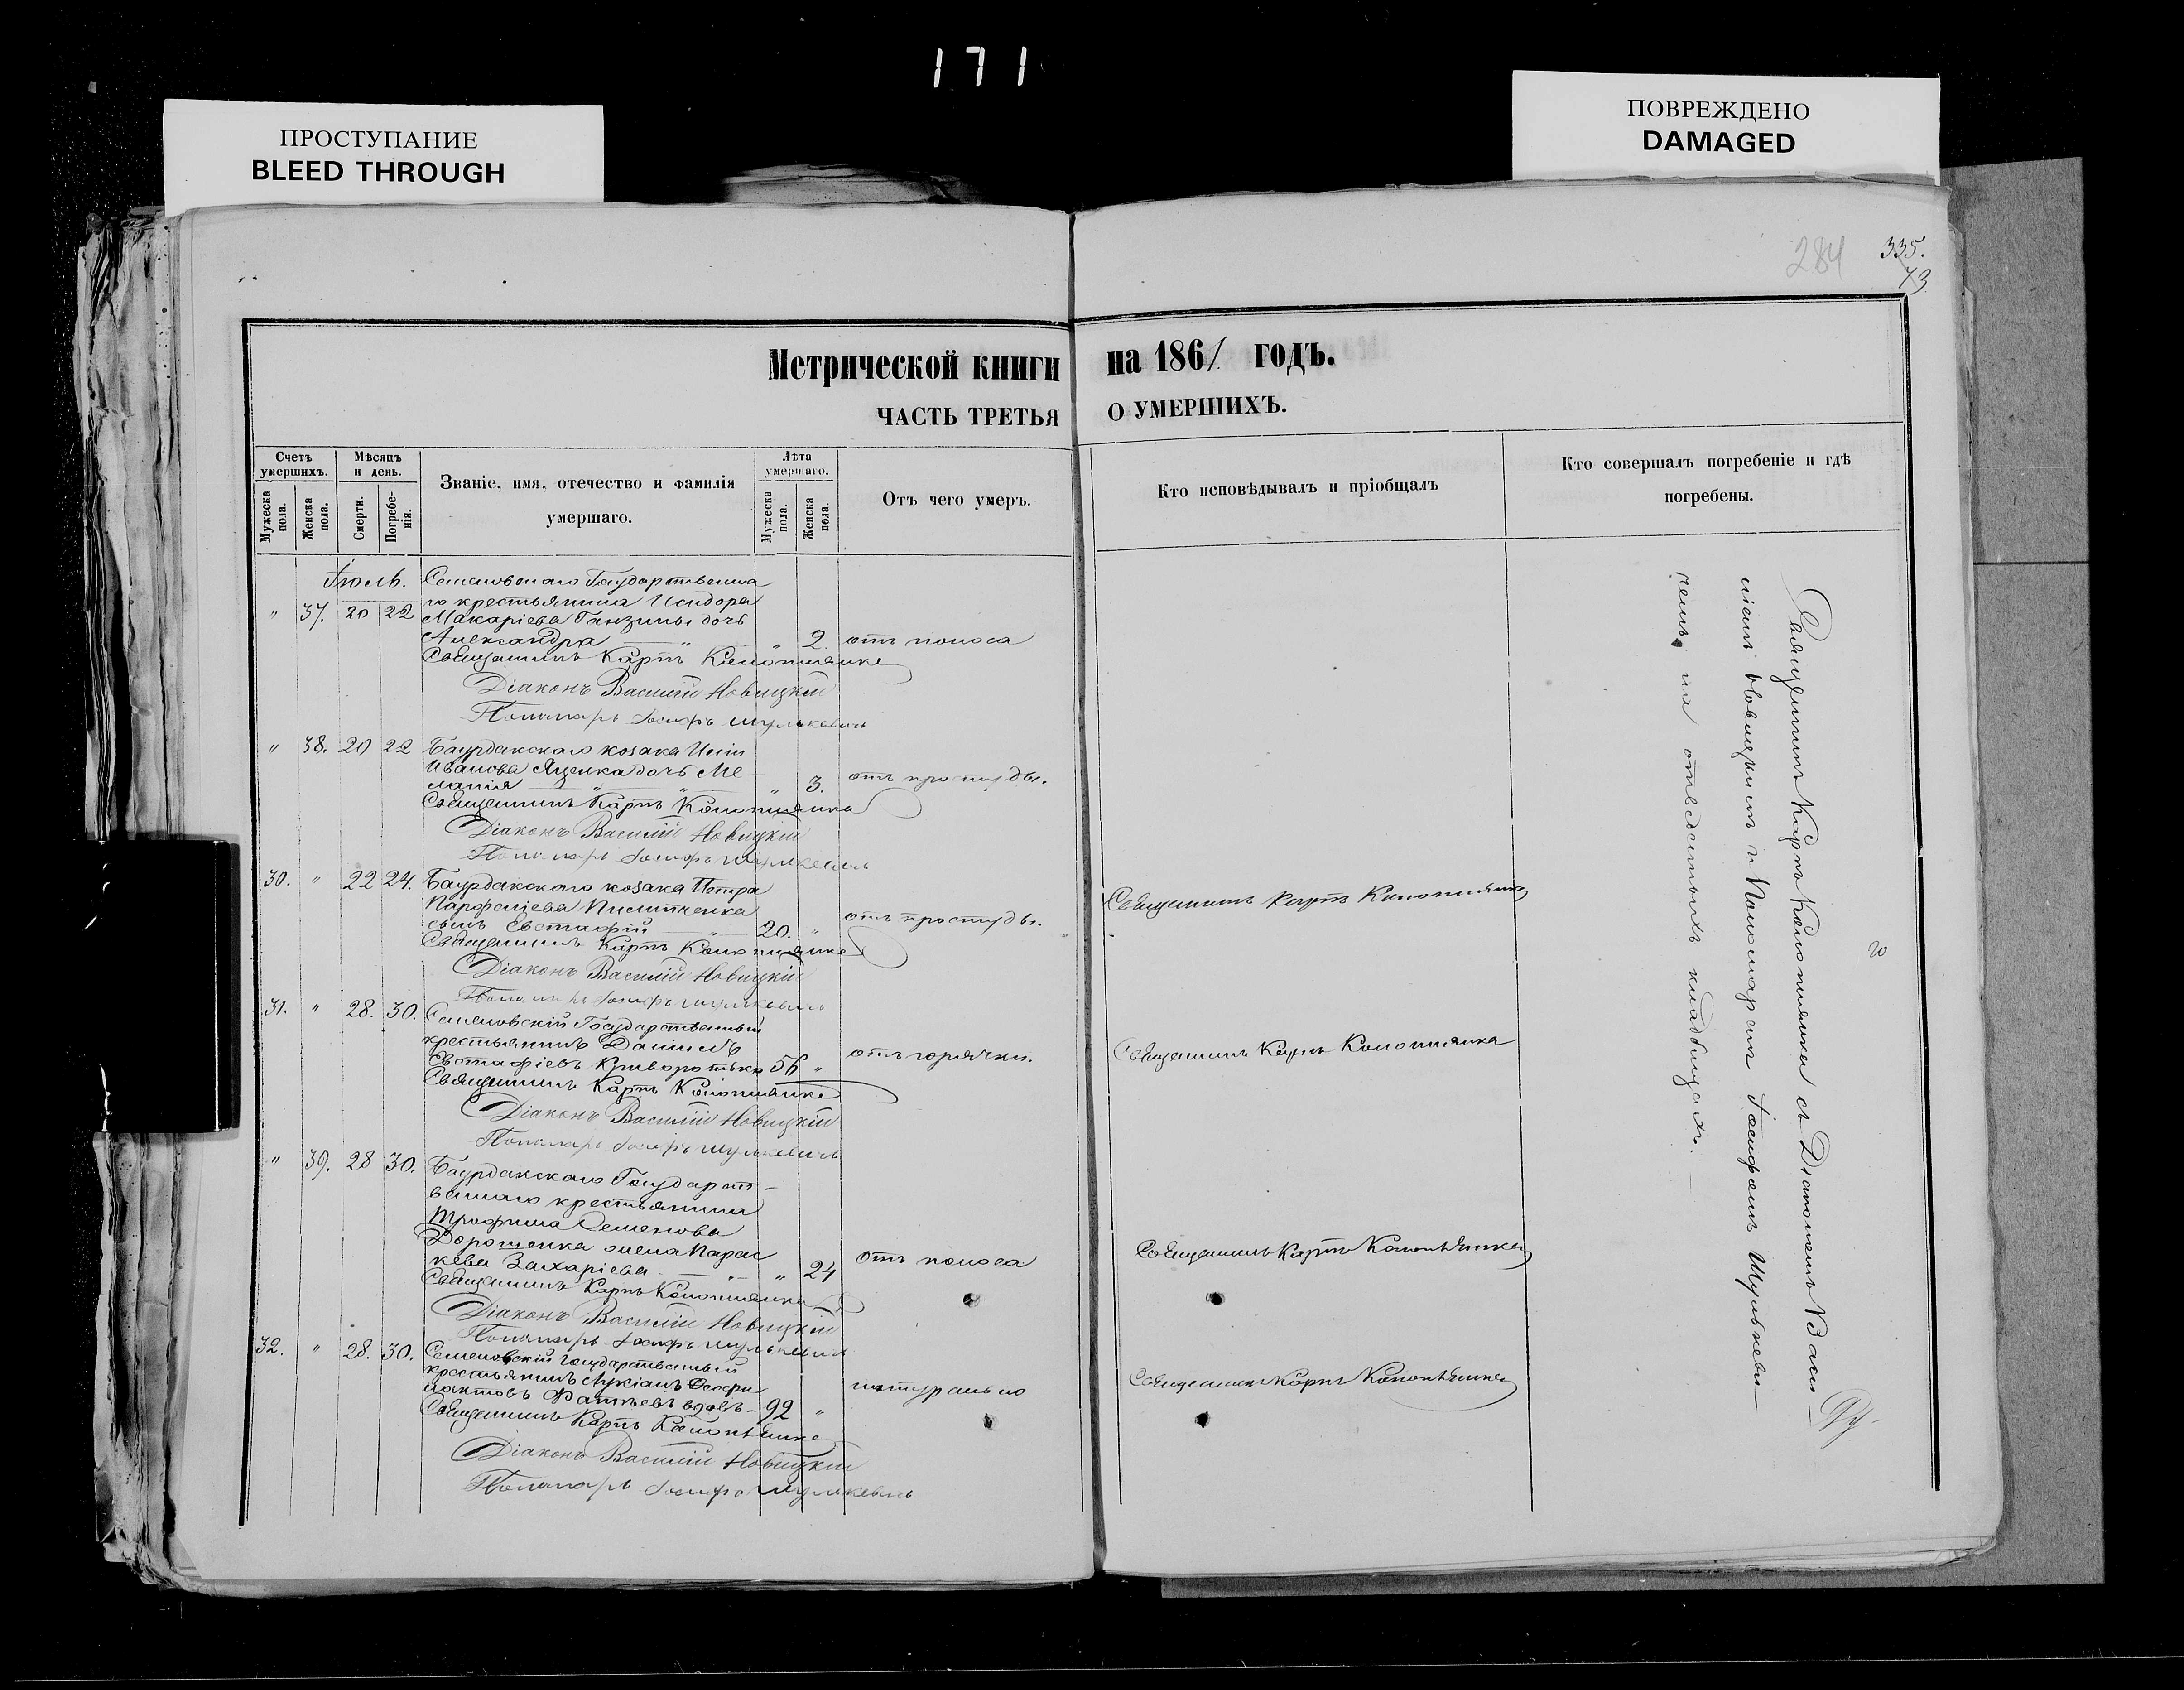 171
ПРОСТУПАНИЕ
BLEED THROUGH
ПОВРЕЖДЕНО
DAMAGED
284
335.
73
Метрической книги на 1861 годъ.
ЧАСТЬ ТРЕТЬЯ О УМЕРШИХЪ.
Счетъ умершихъ.
Мужеска пола.
Женска пола.
Мѣсяцъ и день.
Смерти.
Погребенія.
Званіе, имя, отечество и фамилія
умершаго.
Лѣта умершаго.
Мужеска пола.
Женска пола.
Отъ чего умеръ.
Кто исповѣдывалъ и пріобщалъ
Кто совершалъ погребеніе и гдѣ
погребены.
Іюль.
Семеновскаго Государственна
го крестьянина Исидора
" 37. 20 22 Макаріева Ганзины дочь
Александра " " 2. отъ поноса
Священникъ Карпъ Конопляика
Діаконъ Василій Новицкій
Пономарь Іосифъ Шулькевичъ
" 38. 20 22 Баурдакскаго козака
Иванова Яценка дочь Ме-
ланія " " " 3. отъ простуды.
Священникъ Карпъ Конопляика
Діаконъ Василій Новицкій
Пономарь Іосифъ Шулькевичъ
30. " 22 24. Баурдакскаго козака Петра
Парфеніева
сынъ Евстафій " 20. " отъ простуды. Священникъ Карпъ Конопляика
Священникъ Карпъ Конопляика
Діаконъ Василій Новицкій
Пономарь Іосифъ Шулькевичъ
31. " 28. 30. Семеновскій Государственный
крестьянинъ Даніилъ
Евстафіевъ Криворотько 56 " отъ горячки. Священникъ Карпъ Конопляика
Священникъ Карпъ Конопляика
Діаконъ Василій Новицкій
Пономарь Іосифъ Шулькевичъ
" 39. 28 30. Баурдакскаго Государст-
веннаго крестьянина
Трофима Семенова
Дорошенка жена Парас
кева Захаріева " " 24 отъ поноса Священникъ Карпъ Конопляика
Священникъ Карпъ Конопляика
Діаконъ Василій Новицкій
Пономарь Іосифъ Шулькевичъ
32. " 28. 30. Семеновскій Государственный
крестьянинъ Лукіанъ Феофи
лактовъ вдовъ - 92 " натурально Священникъ Карпъ Конопляика
Священникъ Карпъ Конопляика
Діаконъ Василій Новицкій
Пономарь Іосифъ Шулькевичъ
Священникъ Карпъ Конопляика съ Діакономъ Васи-
ліемъ Новицкимъ и Пономаремъ Іосифомъ Шулькеви-
чемъ на отведенныхъ кладбищахъ. -